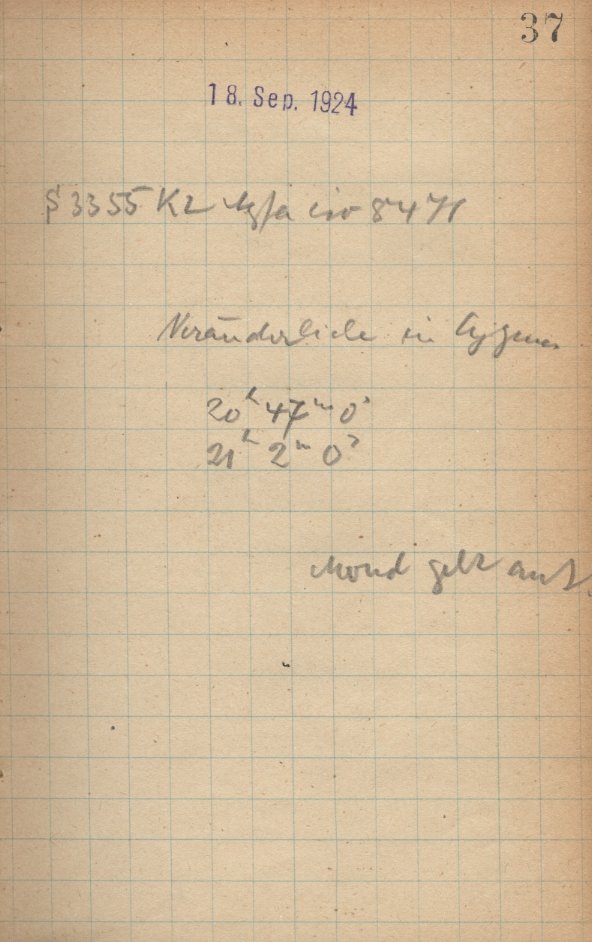 37
18. Sep. 1924
S 3355 K2 Agfa iso 8471
Veränderliche in Cygnus
20ʰ 47ᵐ 0ˢ
21ʰ 2ᵐ 0ˢ
Mond geht auf.